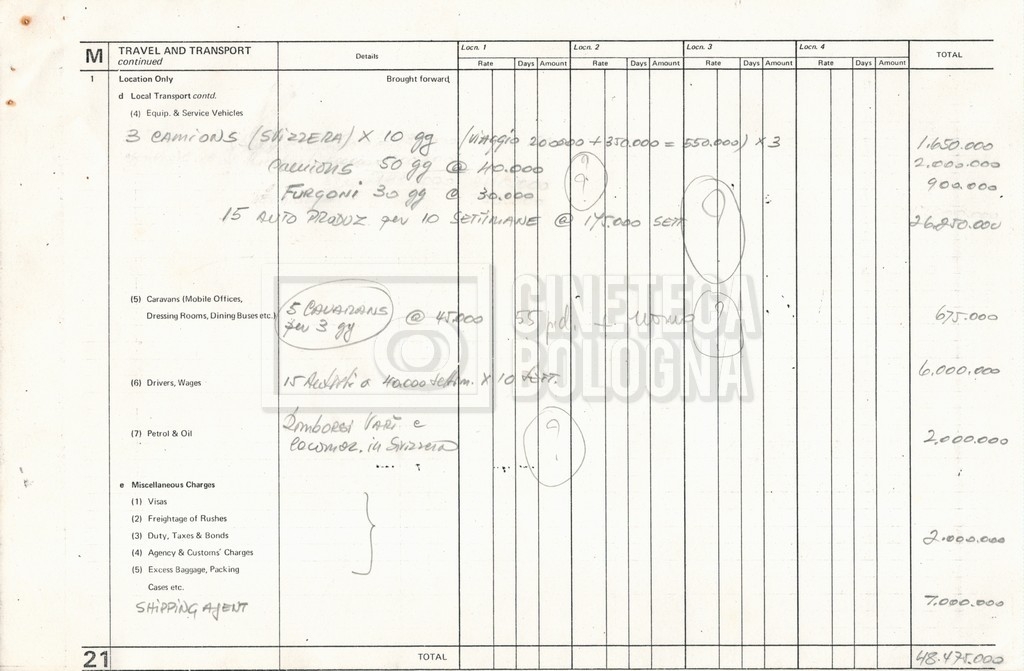 M TRAVEL AND TRANSPORT continued Details Locn. 1 Locn. 2 Locn. 3 Locn. 4 TOTAL
Rate Days Amount Rate Days Amount Rate Days Amount Rate Days Amount
1 Location Only Brought forward
d Local Transport contd.
(4) Equip. & Service Vehicles
3 CAMIONS (SVIZZERA) X 10 gg (viaggio 200000 + 350.000 = 550.000) X 3 1.650.000
Camions 50 gg @ 40.000 ? 2.000.000
FURGONI 30 gg @ 30.000 900.000
15 AUTO PRODUZ per 10 SETTIMANE @ 175.000 SETT ? 26.250.000
(5) Caravans (Mobile Offices,
Dressing Rooms, Dining Buses etc.) 5 CARAVANS per 3 gg @ 45000 ? 675.000
(6) Drivers, Wages 15 Autisti a 40.000 settim. X 10 sett. 6.000.000
(7) Petrol & Oil Rimborsi Vari e
locomoz. in Svizzera ? 2,000.000
e Miscellaneous Charges
(1) Visas
(2) Freightage of Rushes
(3) Duty, Taxes & Bonds 2.000.000
(4) Agency & Customs' Charges
(5) Excess Baggage, Packing
Cases etc.
SHIPPING AGENT 7.000.000
21 TOTAL 48.475.000
CINETECA
BOLOGNA